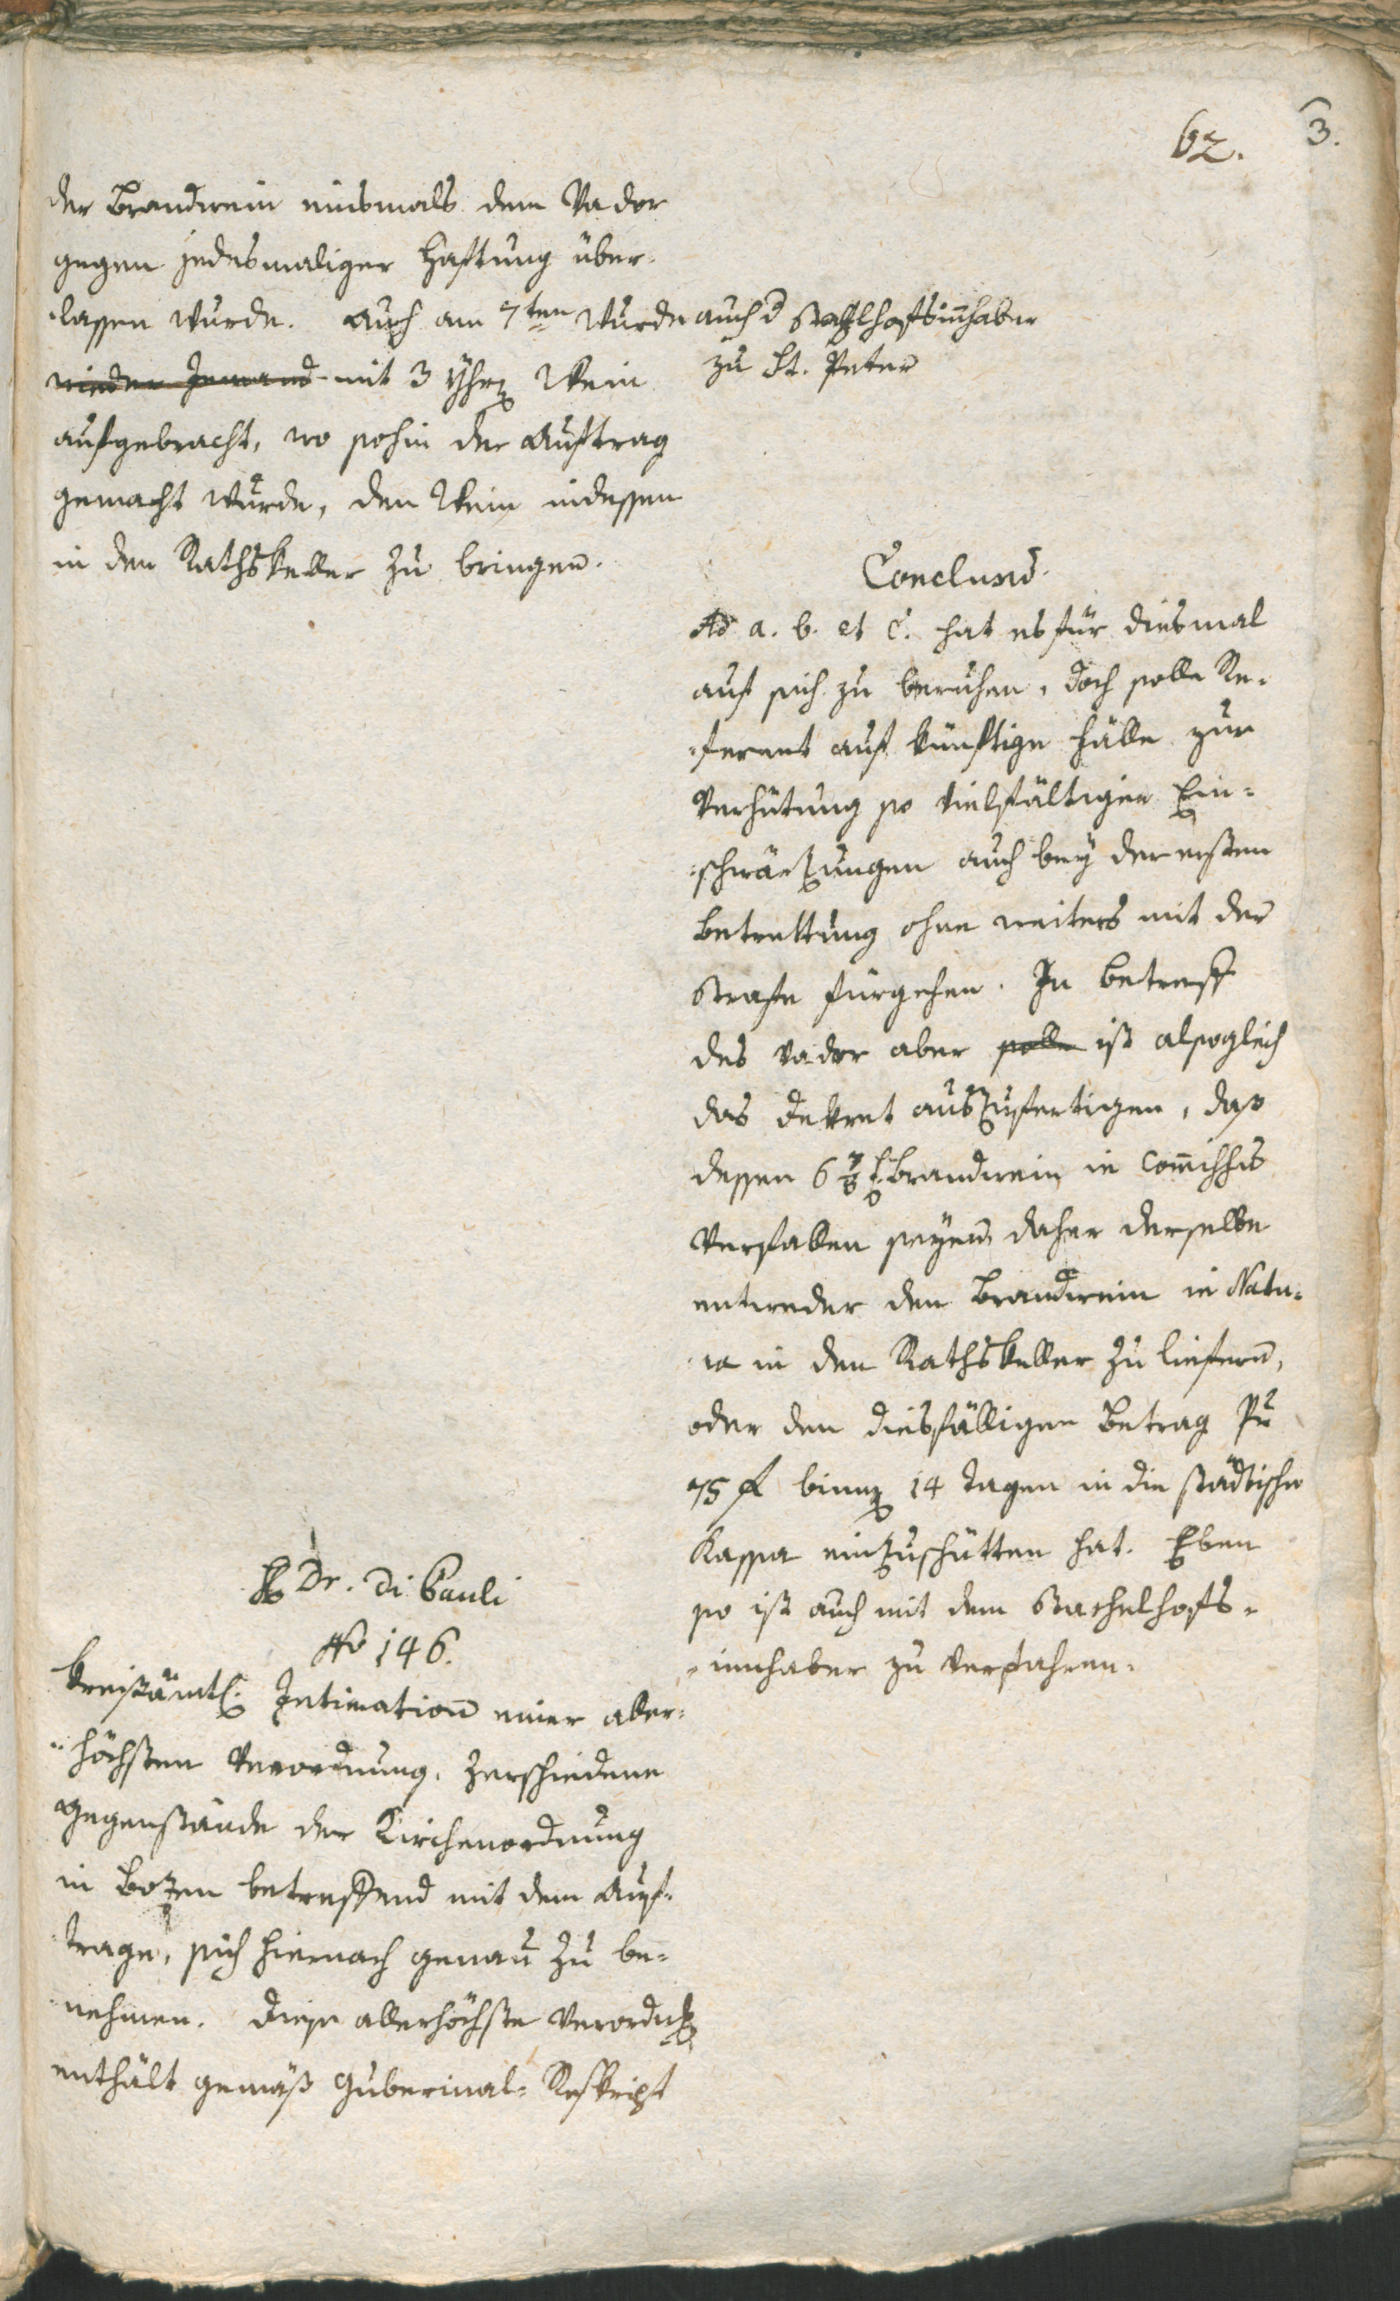 62.
3.
der Brandwein einsmals dem Vador
gegen jedesmaliger Haftung über-
lassen wurde. Auch am 7ten wurde
auch d Stachlhofsinnhaber
zu St. Peter
wieder Jemand mit 3 Yhrn Wein
aufgebracht, wo sohin der Auftrag
gemacht wurde, den Wein indessen
in den Rathskeller zu bringen.
H Dr. Di Pauli
No 146.
Kreisämtl. Intimation einer aller-
höchsten Verordnung. Zerschiedene
Gegenstände der Kirchenordnung
in Bozen betreffend mit dem Auf-
trage, sich hiernach genau zu be-
nehmen. Diese allerhöchste Verordng
enthält gemäß Gubernial-Reskript
Conclusum
Ad a. b. et c. hat es für diesmal
auf sich zu beruhen, doch solle Re-
ferent auf künftige Fälle zur
Verhütung so vielfältiger Ein-
schwärzungen auch bey der ersten
Betrettung ohne weiters mit der
Strafe fürgehen. In Betreff
des Vador aber solle ist alsogleich
das Dekret auszufertigen, daß
dessen 6 Brandwein in Commissis
verfallen seyen, daher derselbe
entweder den Brandwein in Natu-
ra in den Rathskeller zu liefern,
oder den diesfälligen Betrag Pr
75 f binnen 14 Tagen in die städtische
Kassa einzuschütten hat. Eben
so ist auch mit dem Stachelhofs-
innhaber zu verfahren.